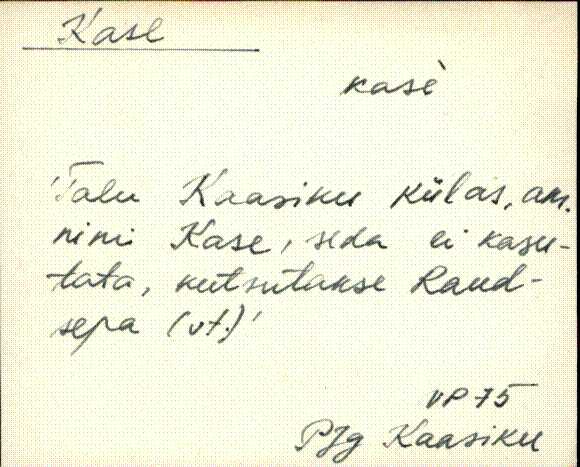 Kase
kasè
'Talu Kaasiku külas, am.
nimi Kase, seda ei kasu-
tata, kutsutakse Raud-
sepa (vt.)'
VP 75
PJg Kaasiku